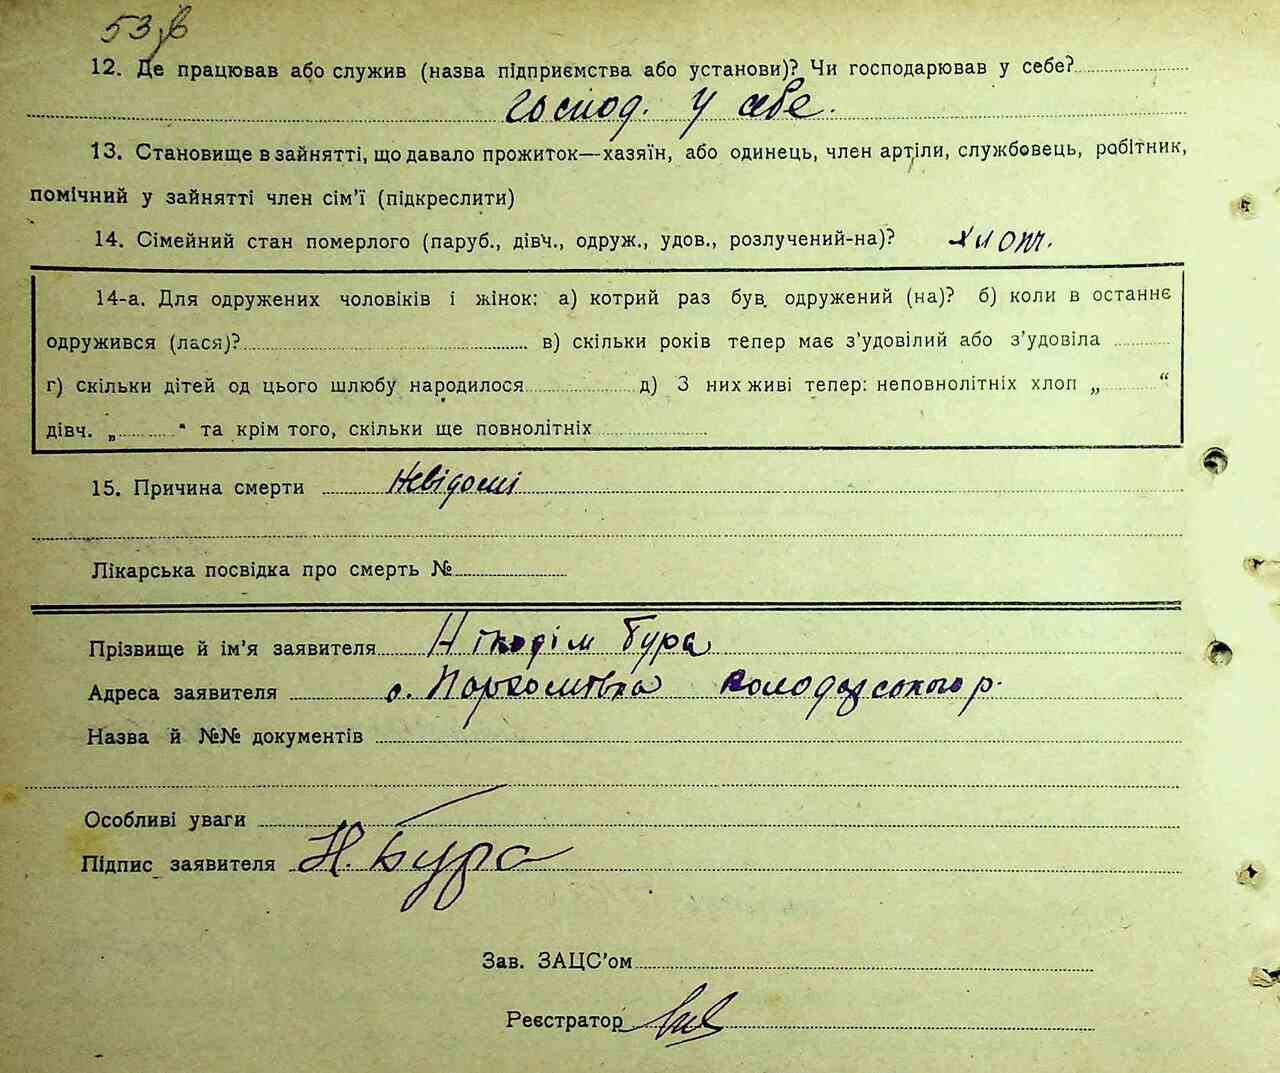 53зв
12. Де працював або служив (назва підприємства або установи)? Чи господарював у себе?
господ. у себе.
13. Становище в зайнятті, що давало прожиток—хазяїн, або одинець, член артіли, службовець, робітник,
помічний у зайнятті член сім'ї (підкреслити)
14. Сімейний стан померлого (паруб., дівч., одруж., удов., розлучений-на)? хлопч.
14-а. Для одружених чоловіків і жінок: а) котрий раз був одружений (на)? б) коли в останнє
одружився (лася)? в) скільки років тепер має з'удовілий або з'удовіла
г) скільки дітей од цього шлюбу народилося д) З них живі тепер: неповнолітніх хлоп „ “
дівч. „ “ та крім того, скільки ще повнолітніх
15. Причина смерти Невідомі
Лікарська посвідка про смерть №
Прізвище й ім'я заявителя Нікодім Бура
Адреса заявителя с. Пархомівка Володарського р.
Назва й №№ документів
Особливі уваги
Підпис заявителя Н. Бура
Зав. ЗАЦС'ом
Реєстратор